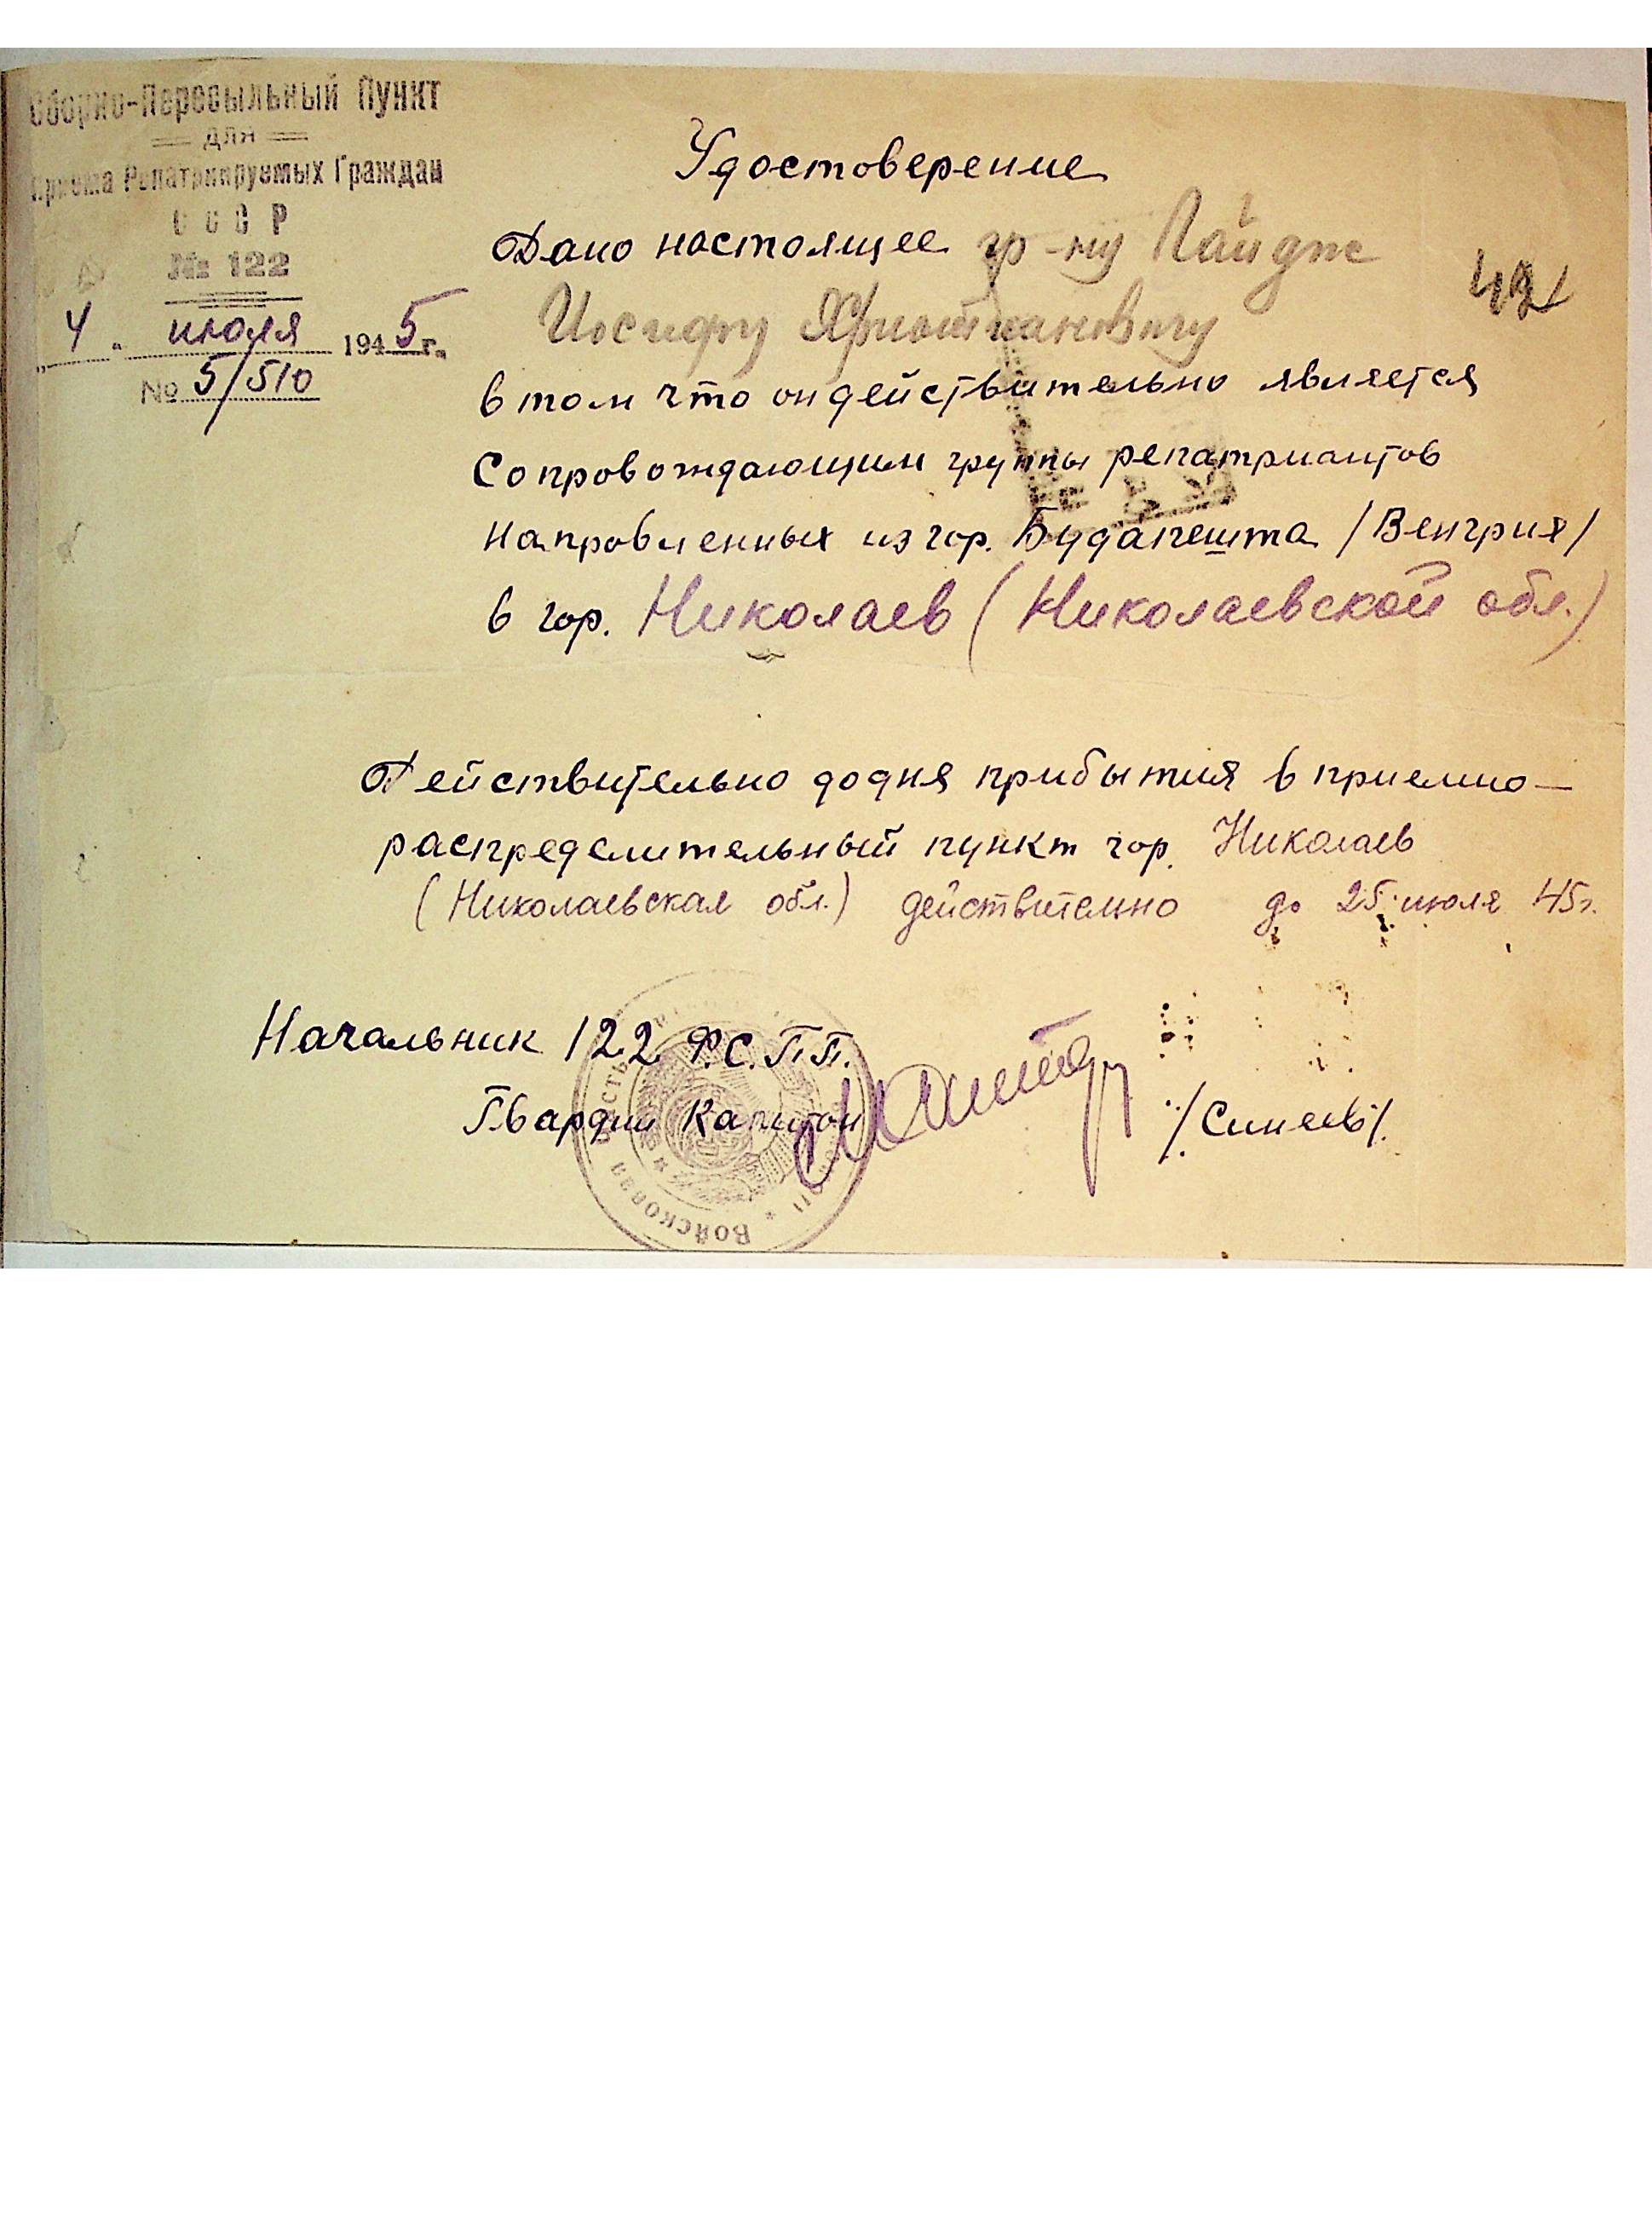 Сборно-Пересыльный Пункт
для
приема Репатриируемых Граждан
СССР
№ 122
4 " июля 1945 г.
№ 5/510
Удостоверение
Дано настоящее гр-ну
Иосифу
42
в том что он действительно является
Сопровождающим группы репатриантов
направленных из гор. Будапешта /Венгрия/
в гор. Николаев (Николаевской обл.)
Действительно до дня прибытия в приемно-
распределительный пункт гор. Николаев
(Николаевская обл.) действительно до 25 июля 45г.
Начальник 122 Ф.С.П.П.
Гвардии Капитан /Синяев/.
Войсковая часть